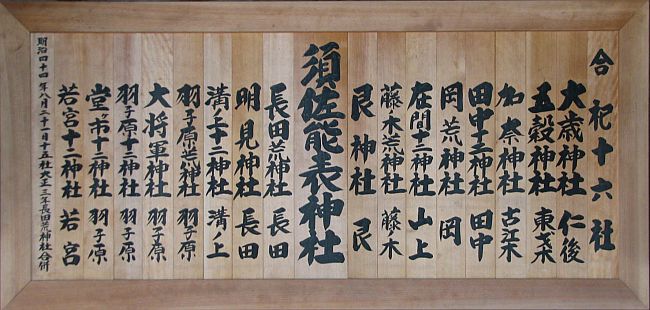 合祀十六社
大歳神社 仁後
五穀神社 東蔵
加奈神社 古江
田中十二神社 田中
岡荒神社 岡
在間十二神社 山上
藤木荒神社 藤木
艮神社 艮
須佐能表神社
長田荒神社 長田
明見神社 長田
溝ノ上十二神社 溝ノ上
羽子原荒神社 羽子原
大将軍神社 羽子原
羽子原十二神社 羽子原
堂ヶ市十二神社 羽子原
若宮十二神社 若宮
明治四十四年八月二十一月十五社大正三年長田荒神社合併